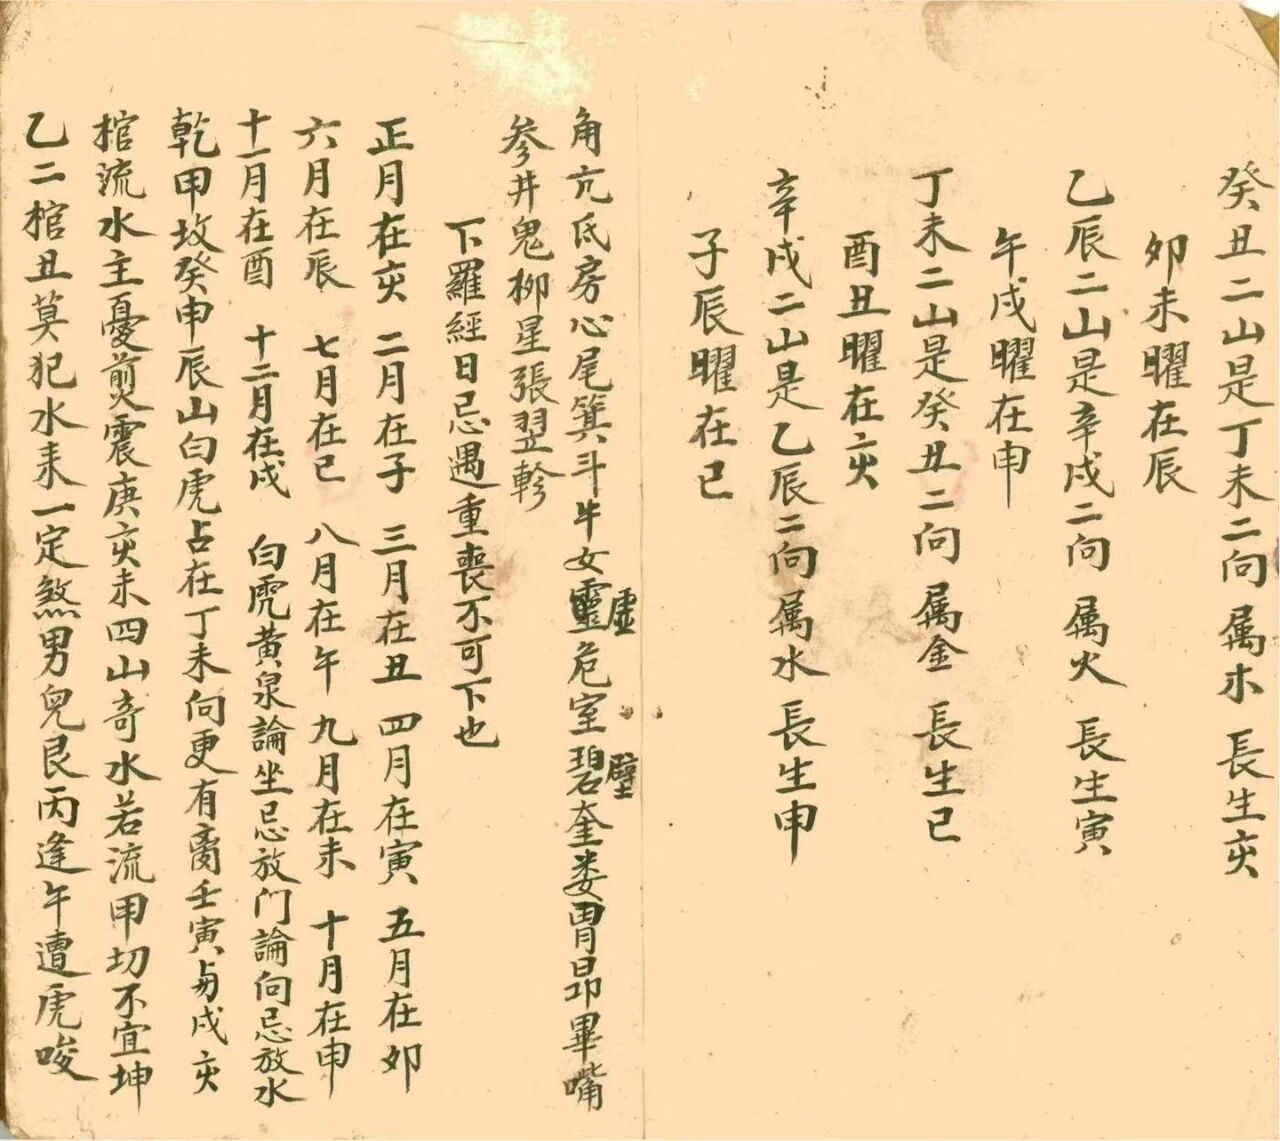 癸丑二山是丁未二向 属木 長生亥
卯未曜在辰
乙辰二山是辛戌二向 属火 長生寅
午戌曜在申
丁未二山是癸丑二向 属金 長生巳
酉丑曜在亥
辛戌二山是乙辰二向 属水 長生申
子辰曜在巳
角亢氐房心尾箕斗牛女靈危室碧奎婁胃昴畢嘴
虛 壁
參井鬼柳星張翌軫
下羅經日忌遇重喪不可下也
正月在亥 二月在子 三月在丑 四月在寅 五月在卯
六月在辰 七月在巳 八月在午 九月在未 十月在申
十一月在酉 十二月在戌 白虎黃泉論坐忌放门論向忌放水
乾甲坟癸申辰山白虎占在丁未向更有离壬寅与戌亥
棺流水主憂煎震庚亥未四山奇水若流甲切不宜坤
乙二棺丑莫犯水来一定煞男兒艮丙逢午遭虎唆